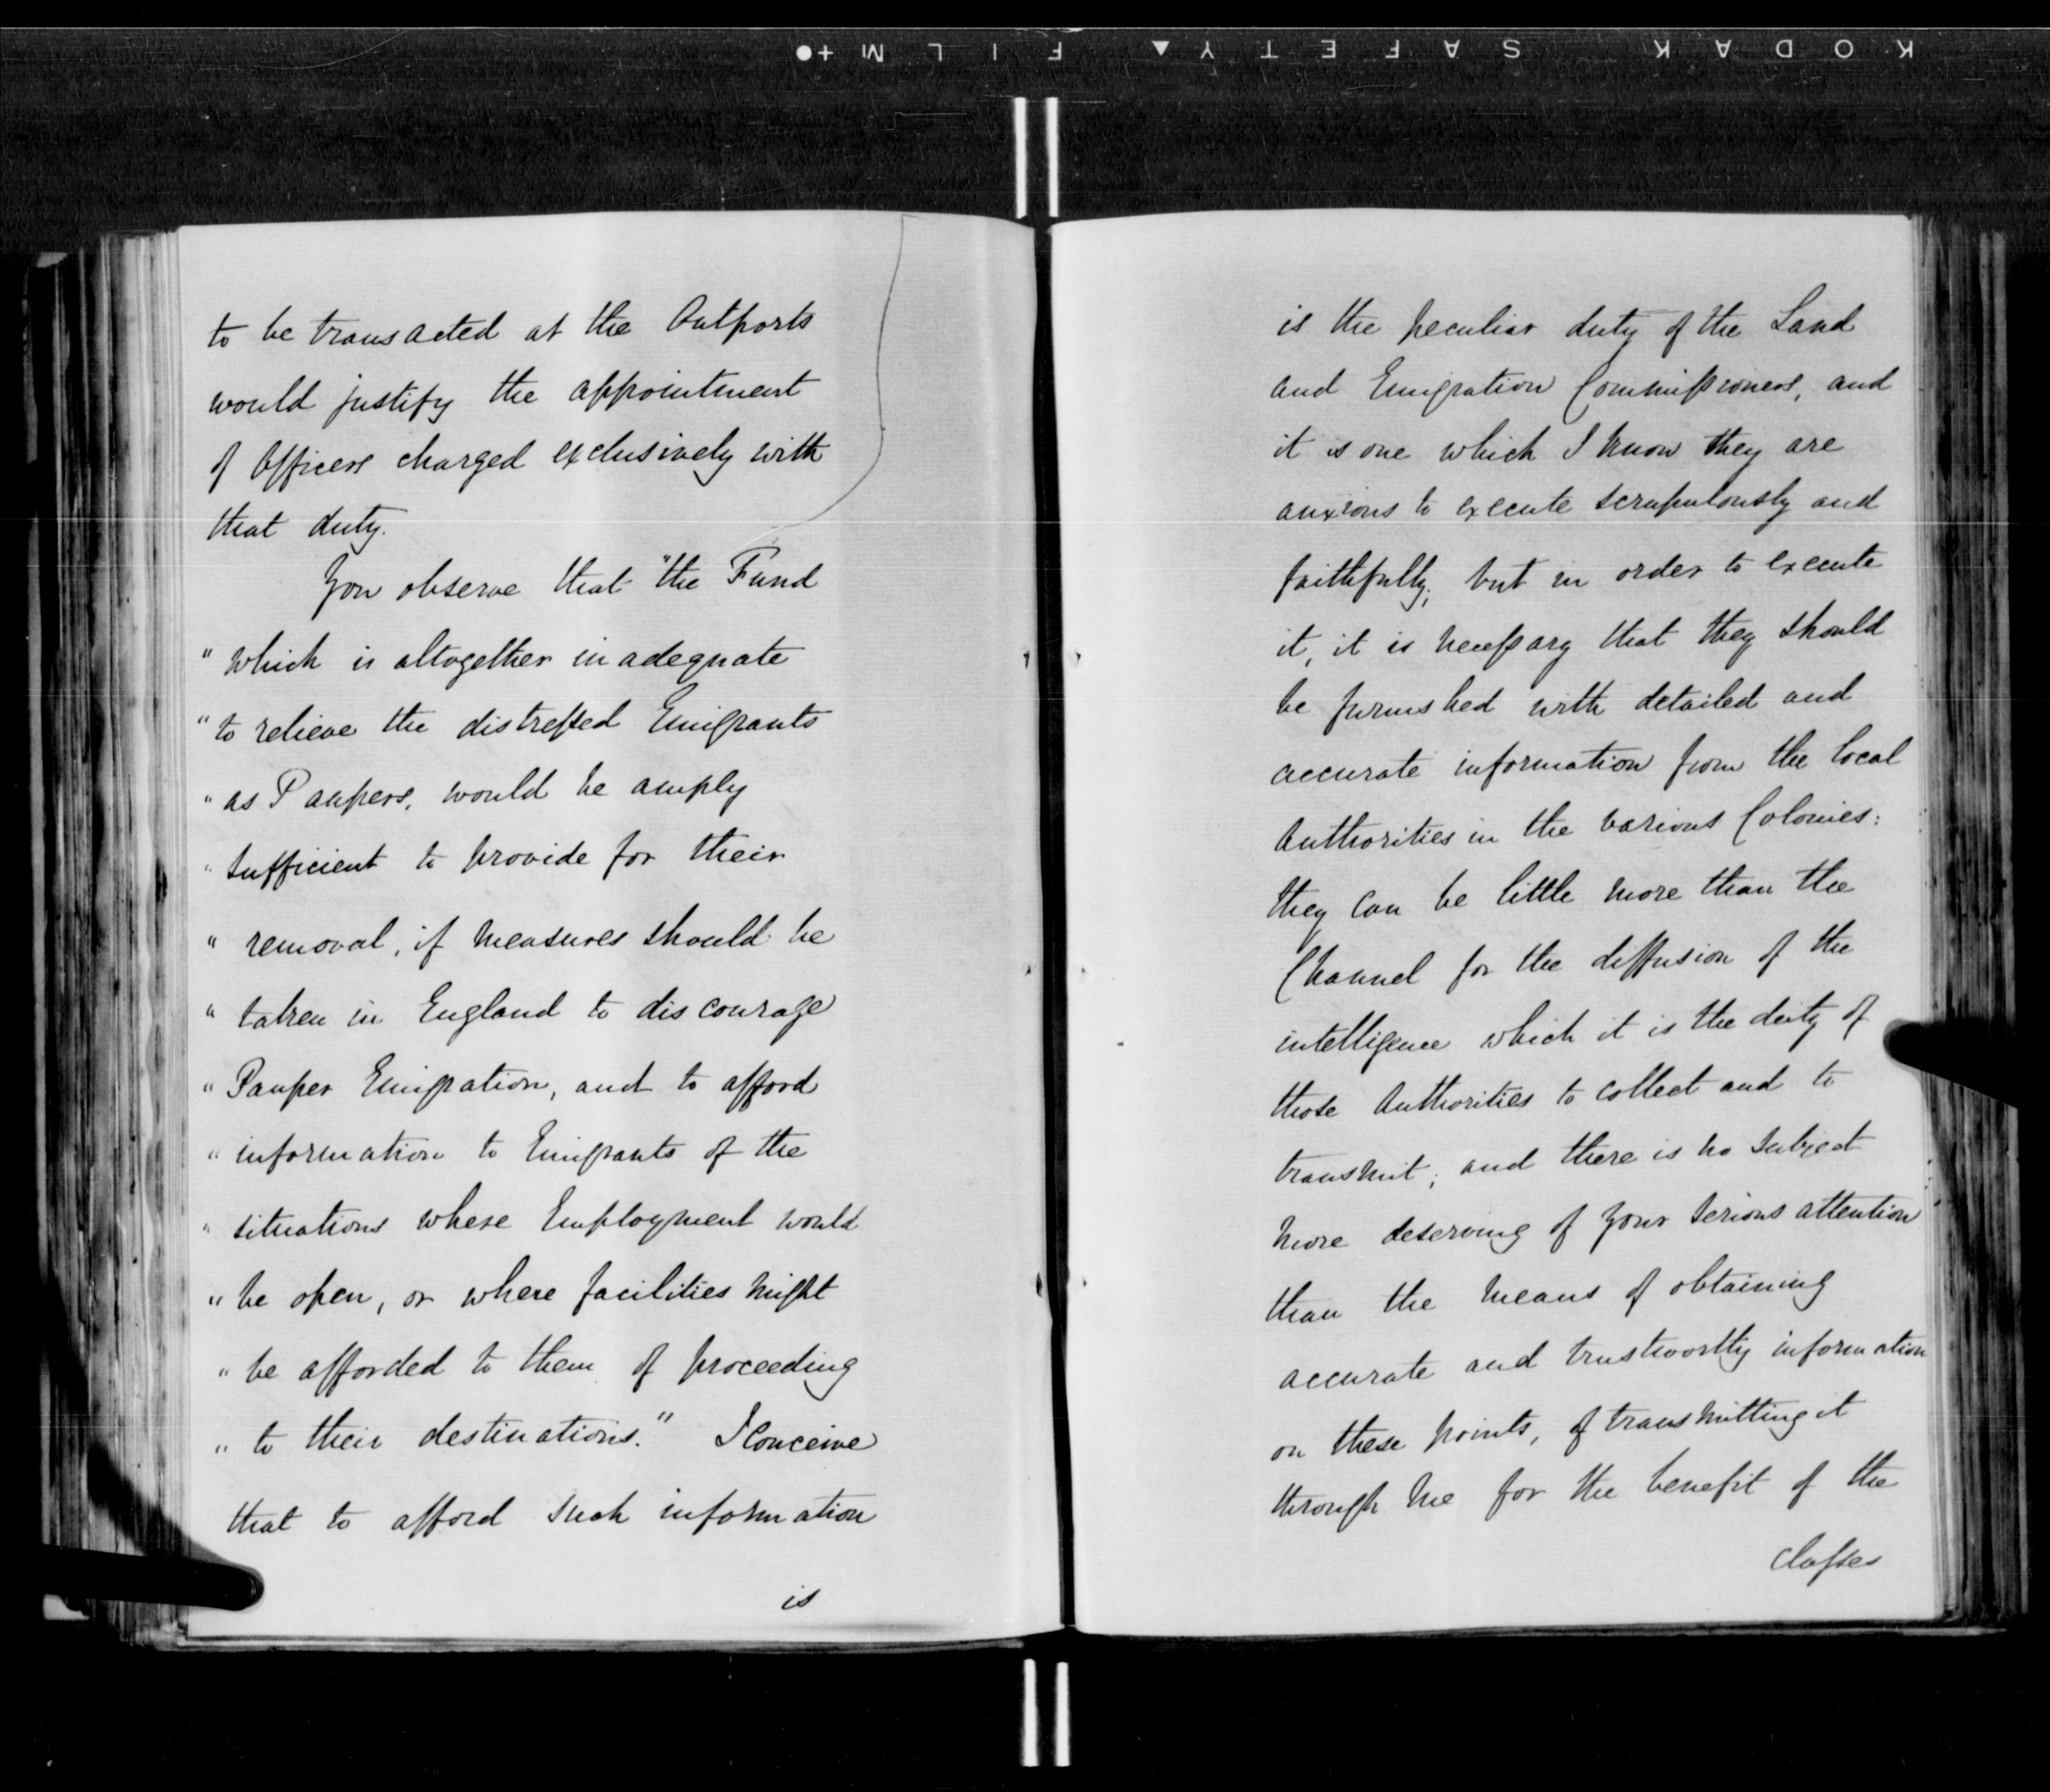 KODAK SAFETY FILM
to be transacted at the Outports
would justify the appointment
of Officers charged exclusively with
that duty.
You observe that "the Fund
" which is altogether inadequate
" to relieve the distressed Emigrants
" as Paupers, would be amply
" sufficient to provide for their
" removal, if measures should be
" taken in England to discourage
" Pauper Emigration, and to afford
" information to Emigrants of the
" situations where Employment would
" be open, or where facilities might
" be afforded to them of proceeding
" to their destinations." I conceive
that to afford such information
is
is the peculiar duty of the Land
and Emigration Commissioners, and
it is one which I know they are
anxious to execute scrupulously and
faithfully; but in order to execute
it, it is necessary that they should
be furnished with detailed and
accurate information from the local
Authorities in the various Colonies:
they can be little more than the
Channel for the diffusion of the
intelligence which it is the duty of
those Authorities to collect and to
transmit; and there is no subject
more deserving of your serious attention
than the means of obtaining
accurate and trustworthy information
on these points, of transmitting it
through me for the benefit of the
classes